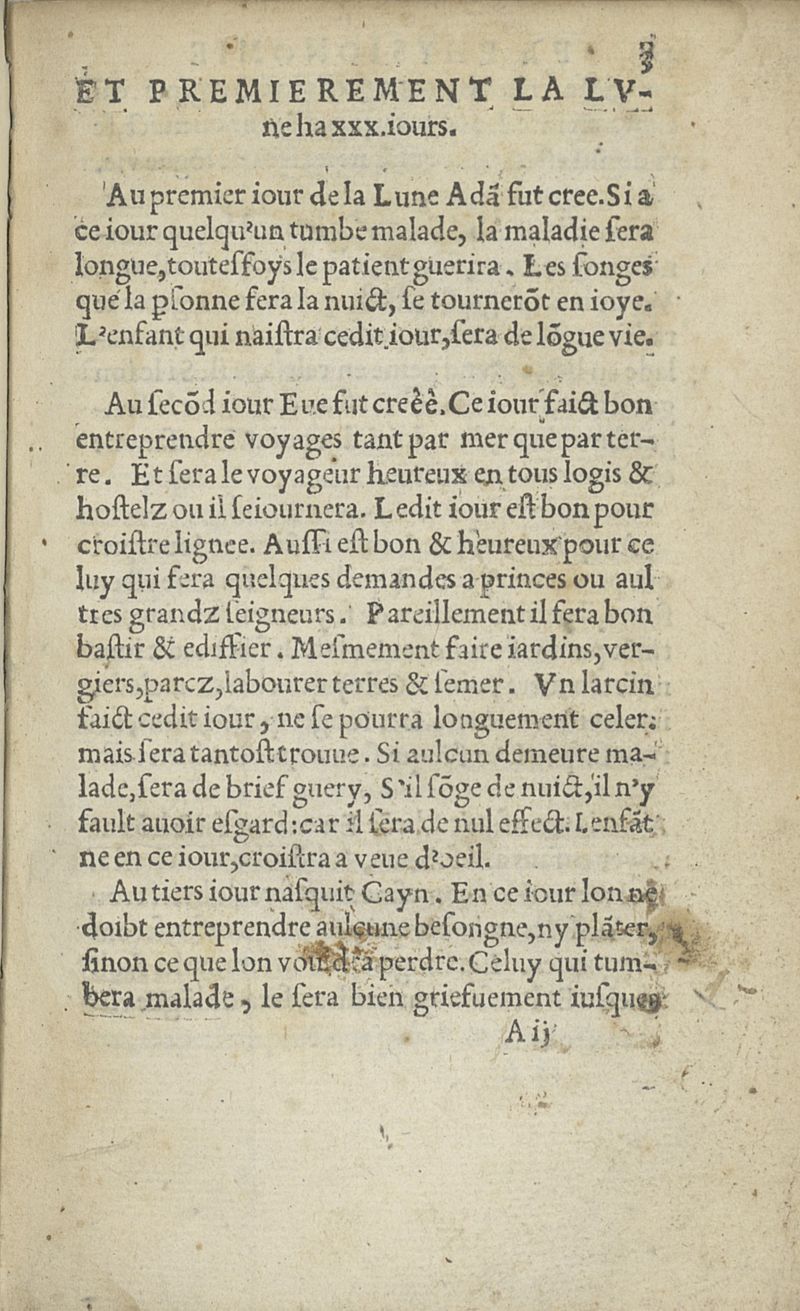 3
ET PREMIEREMENT LA LV-
ne ha xxx.iours.
Au premier iour de la Lune Adã fut cree. Si a
ce iour quelqu'un tumbe malade, la maladie ſera
longue, touteſfoys le patient guerira. Les ſonges
que la pſonne fera la nuict, ſe tournerõt en ioye.
L'enfant qui naiſtra cedit iour, ſera de lõgue vie.
Au ſecõd iour Eue fut creéé. Ce iour faict bon
entreprendre voyages tant par mer que par ter-
re. Et ſera le voyageur heureux en tous logis &
hoſtelz ou il ſeiournera. Ledit iour eſt bon pour
croiſtre lignee. Auſſi eſt bon & heureux pour ce
luy qui fera quelques demandes a princes ou aul
tres grandz ſeigneurs. Pareillement il fera bon
baſtir & ediffier. Meſmement faire iardins, ver-
giers, parcz, labourer terres & ſemer. Vn larcin
faict cedit iour, ne ſe pourra longuement celer:
mais ſera tantoſt trouue. Si aulcun demeure ma-
lade, ſera de brief guery, S'il ſõge de nuict, il n'y
fault auoir eſgard: car il ſera de nul effect. Lenfãt
ne en ce iour, croiſtra a veue d'oeil.
Au tiers iour naſquit Cayn. En ce iour lon ne
doibt entreprendre aulcune beſongne, ny plãter,
ſinon ce que lon vouldra perdre. Celuy qui tum-
bera malade, le ſera bien griefuement iuſques
A ij